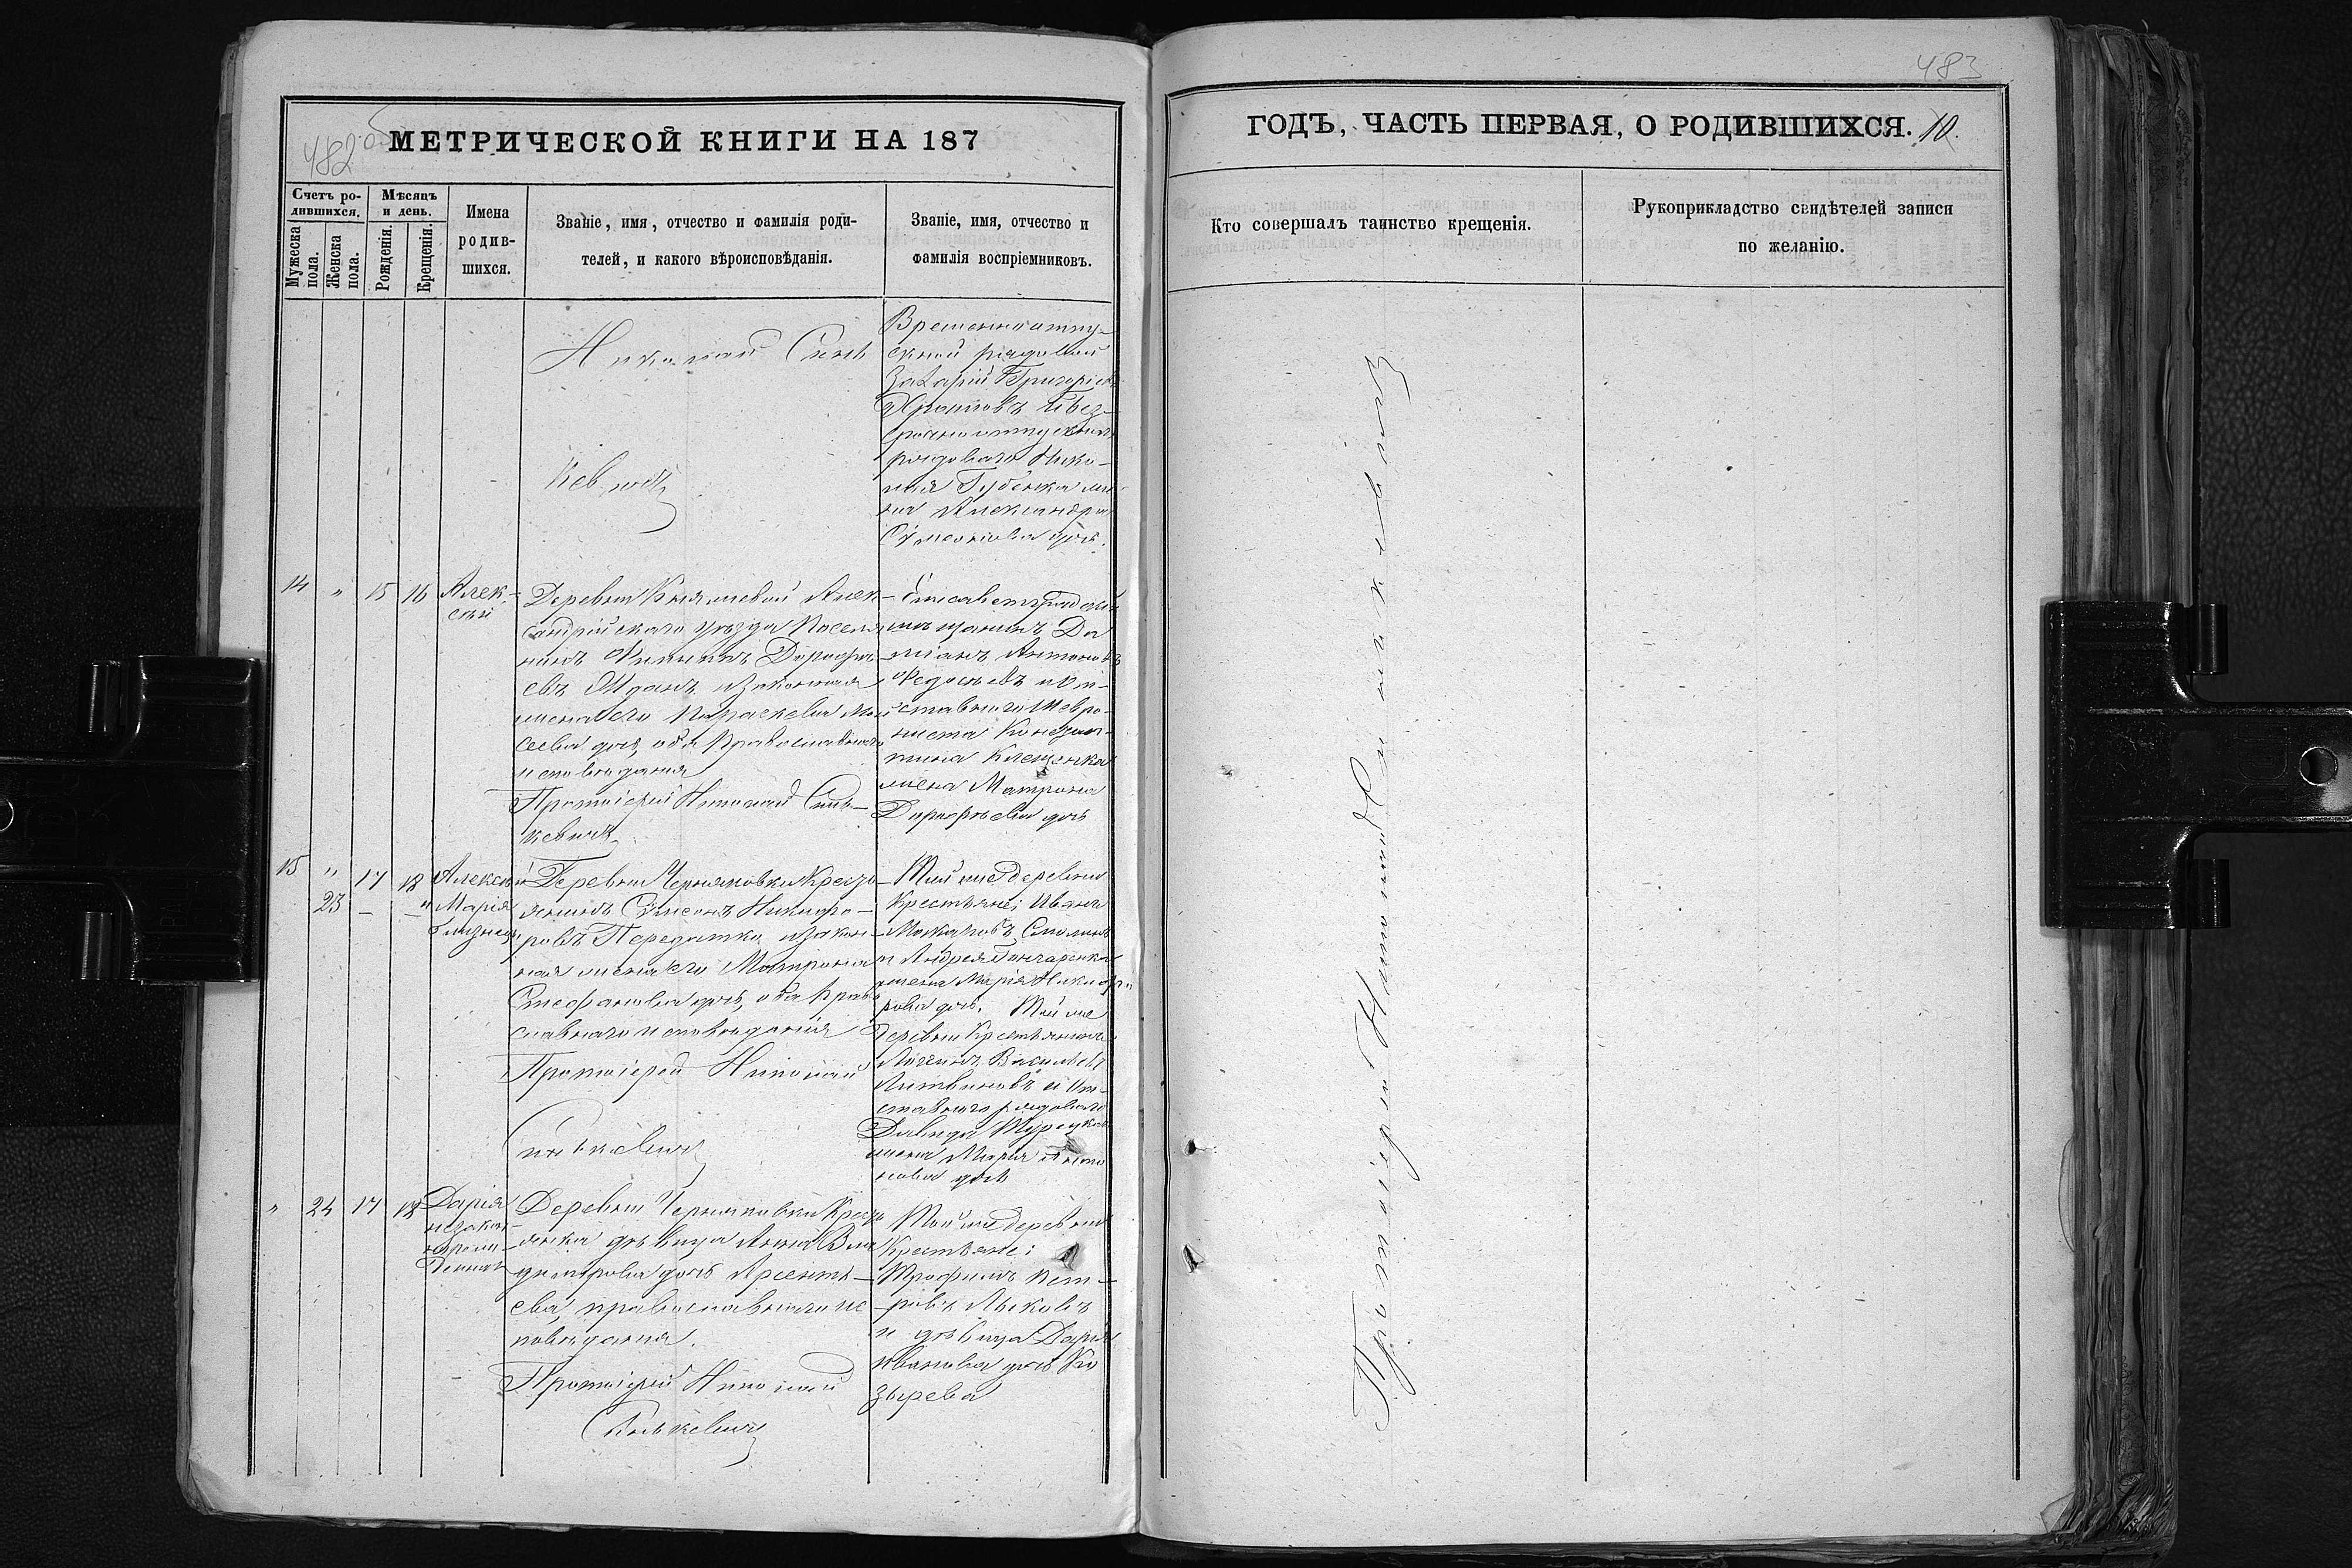 482 об
МЕТРИЧЕСКОЙ КНИГИ НА 187
Счетъ ро-
дившихся.
Мужеска
пола.
Женска
пола.
Мѣсяцъ
и день.
Рожденія.
Крещенія.
Имена
родив-
шихся.
Званіе, имя, отчество и фамилія роди-
телей, и какого вѣроисповѣданія.
Званіе, имя, отчество и
фамилія воспріемниковъ.
Николай Синь
кевичъ
Временноотпу-
скной рядовой
Захарій Григоріевъ
и без-
срочноотпускнаго
рядоваго Нико-
лая Губенка же-
на Александра
Сѵмеонова дочь.
14 " 15 16
Алек-
сѣй
Деревни Алек-
сандрійскаго уѣзда Поселя-
нинъ Филиппъ Дорофѣ-
евъ Жданъ и законная
жена его Параскева Мои
сеева дочь, оба православнаго
исповѣданія
Протоіерей Николай Синь-
кевичъ
Елисаветградскій
мѣщанинъ Да
міанъ Антоновъ
Федосѣевъ и От-
ставнаго
Констан-
тина Клещенка
жена Матрона
Дорофѣева дочь
15 " 17 18
Алексѣй
23 – – "
и Марія
близнецы
Деревни Черняховки Кресть-
янинъ Сѵмеонъ Никифо-
ровъ Передатко и закон-
ная жена его Матрона
Стефанова дочь, оба Право
славнаго исповѣданія
Протоіерей Николай
Синькевичъ
Той же деревни
Крестьяне: Иванъ
Макаровъ
и Андрея Гончаренка
жена Марія Никифо
рова дочь. Той же
деревни Крестьянинъ
Логгинъ Васильевъ
Литвиновъ и От-
ставнаго рядоваго
Давида
жена Марія Анто
нова дочь
" 24 17 18
Дарія
незакон-
норож-
денная
Деревни Черняховки Кресть
янска дѣвица Анна Вла
димірова дочь Арсенть-
ева, православнаго ис
повѣданія.
Протоіерей Николай
Синькевичъ
Той же деревни
Крестьяне:
Трофимъ Пет-
ровъ Лысковъ
и дѣвица Дарія
Иванова дочь Ко
зырева
483
ГОДЪ, ЧАСТЬ ПЕРВАЯ, О РОДИВШИХСЯ. 10.
Кто совершалъ таинство крещенія.
Рукоприкладство свидѣтелей записи
по желанію.
Протоіерей Николай Синькевичъ